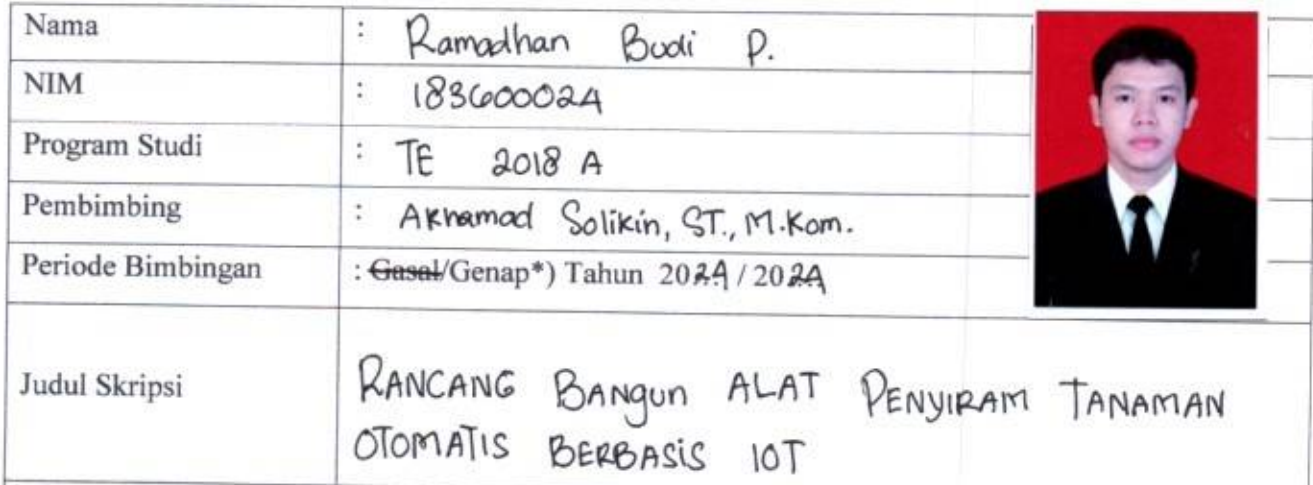 Nama : Ramadhan Budi P.
NIM : 183600024
Program Studi : TE 2018 A
Pembimbing : Akhamad Solikin, ST., M.Kom.
Periode Bimbingan : Gasal/Genap*) Tahun 2024 / 2024
Judul Skripsi
RANCANG BANGUN ALAT PENYIRAM TANAMAN
OTOMATIS BERBASIS IOT